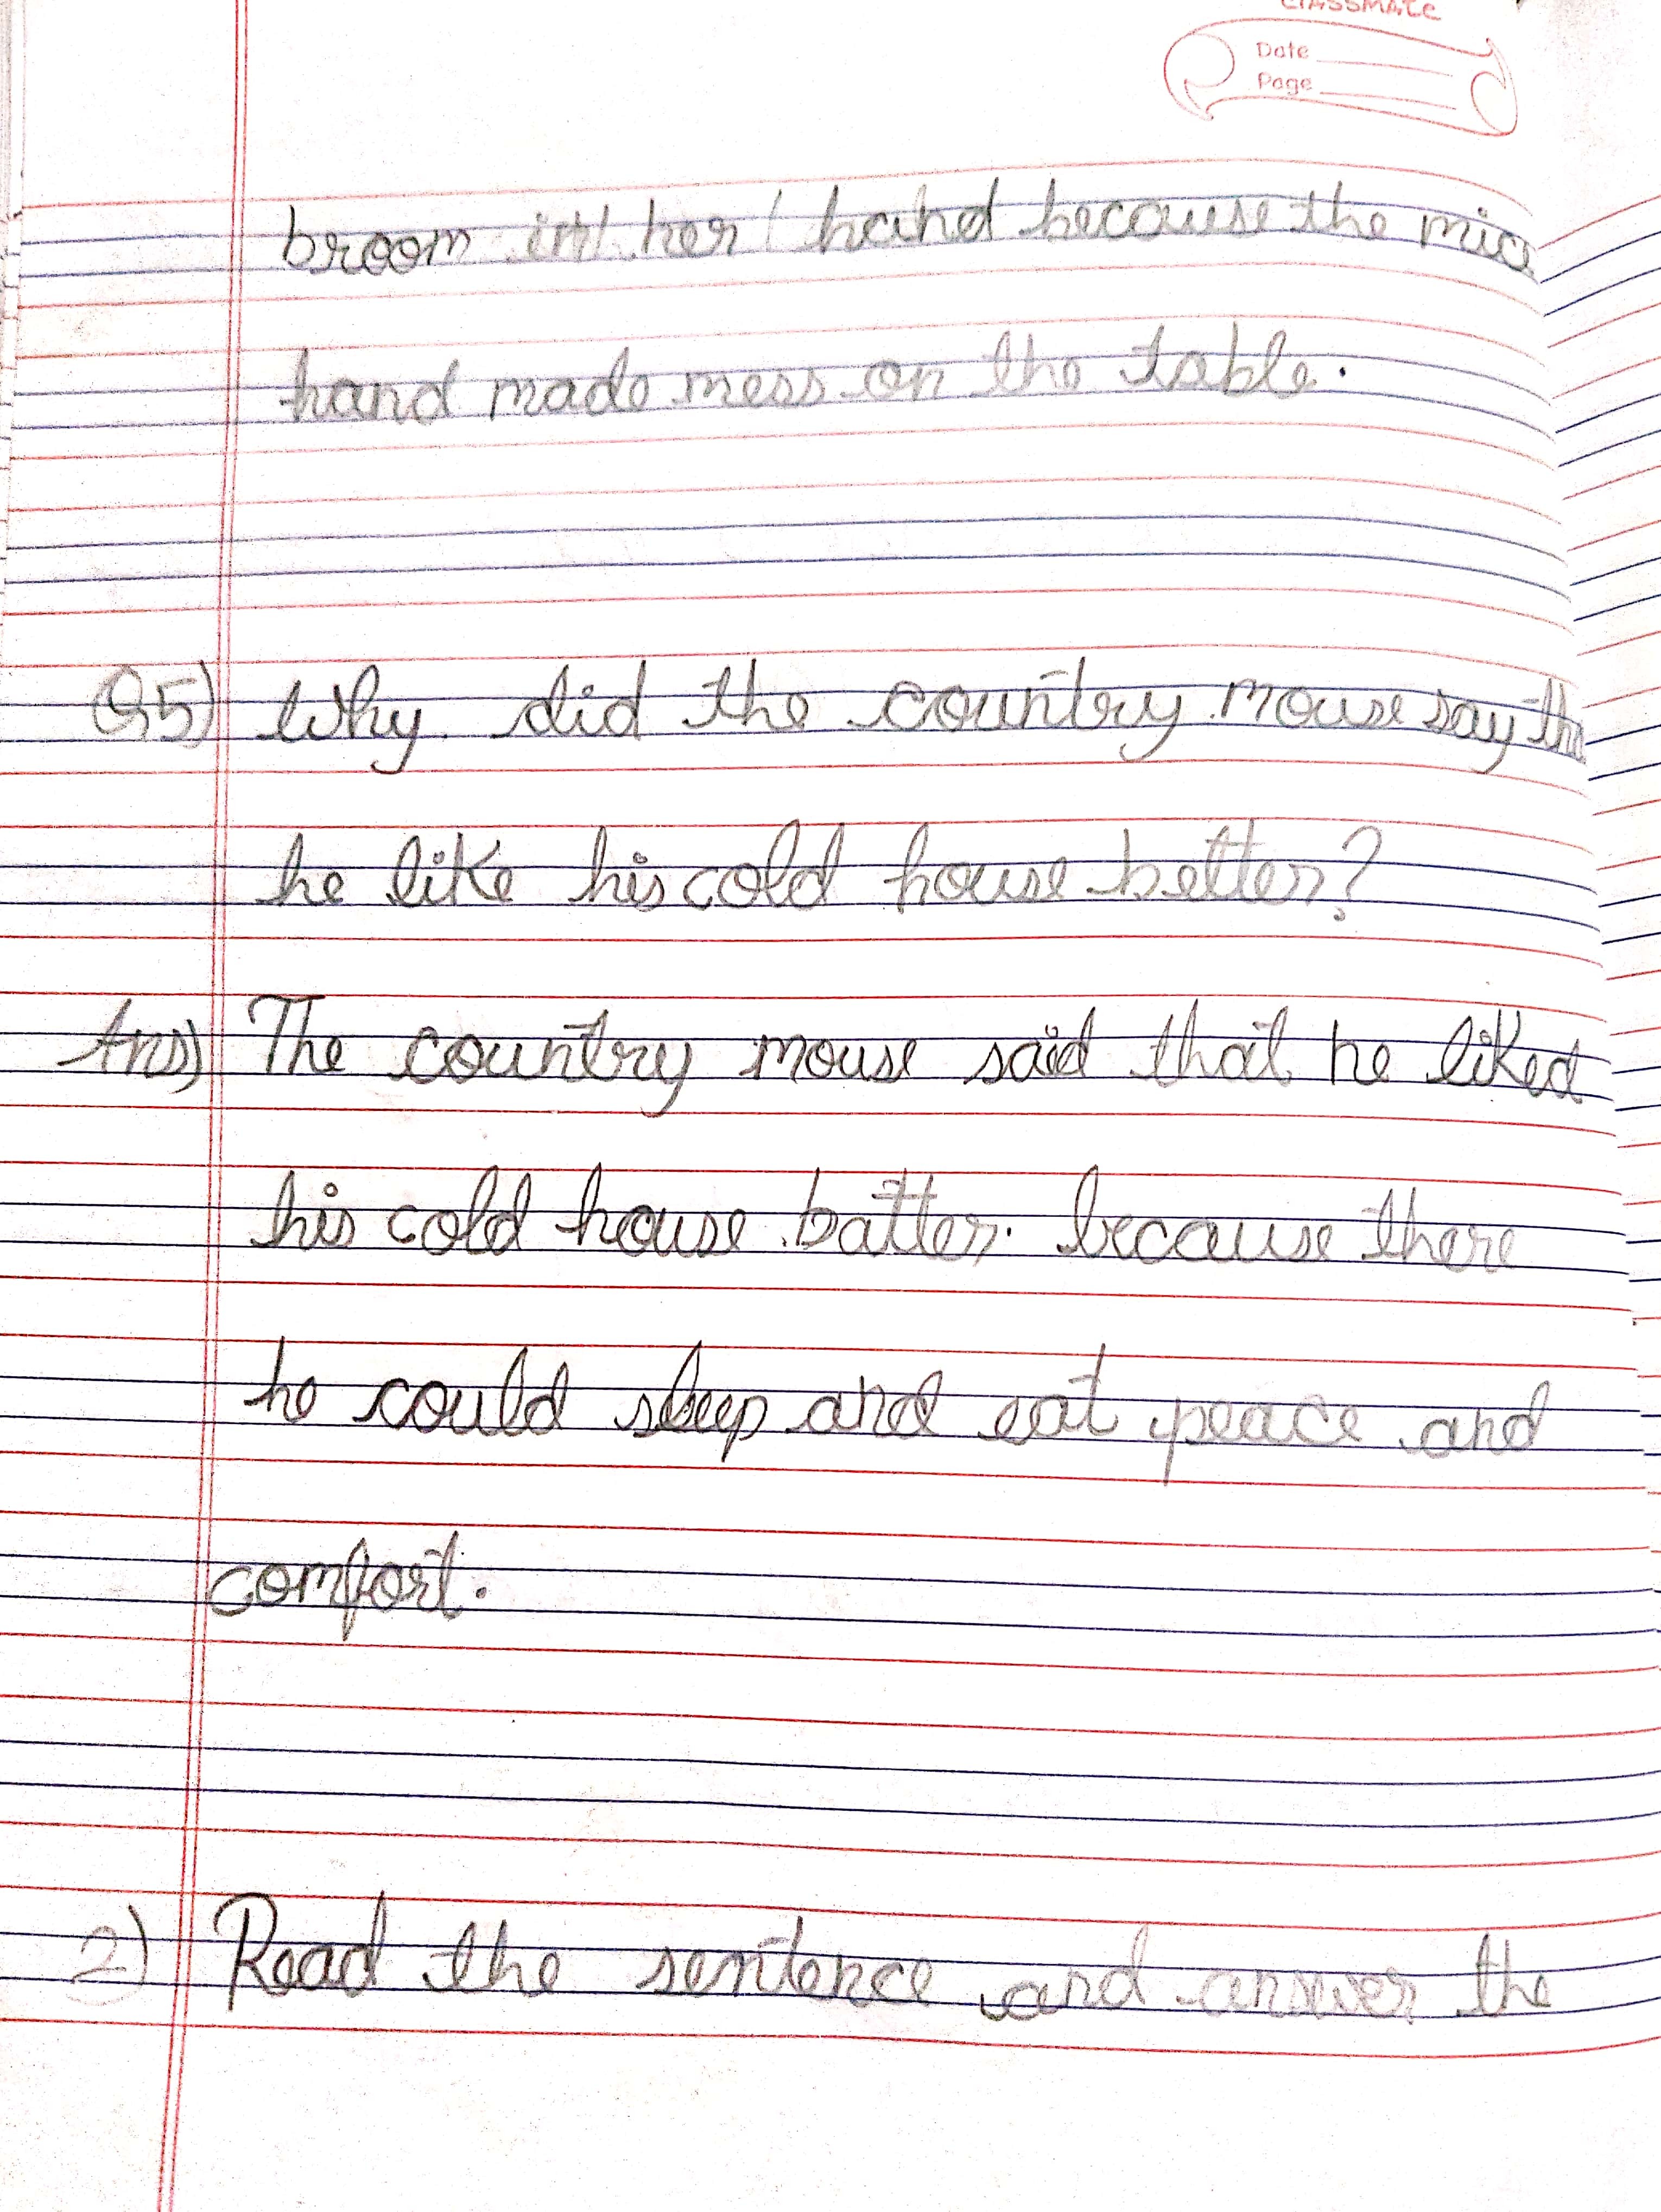 classmate
Date
Page
broom in her hand because the mice
hand made mess on the table.
Q5) Why did the country mouse say tha
he like his cold house better?
Ans) The country mouse said that he liked
his cold house batter. because there
he could sleep and eat peace and
comfort.
2) Read the sentence and answer the